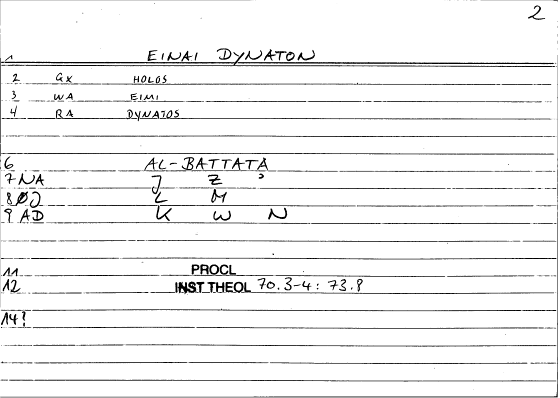 2
1 EINAI DYNATON
2 GX HOLOS
3 WA EIMI
4 RA DYNATOS
6 AL-BATTATA
7 NA J Z ʾ
8 0J L M
9 AD K W N
11 PROCL
12 INST THEOL 70.3-4: 73.8
14?